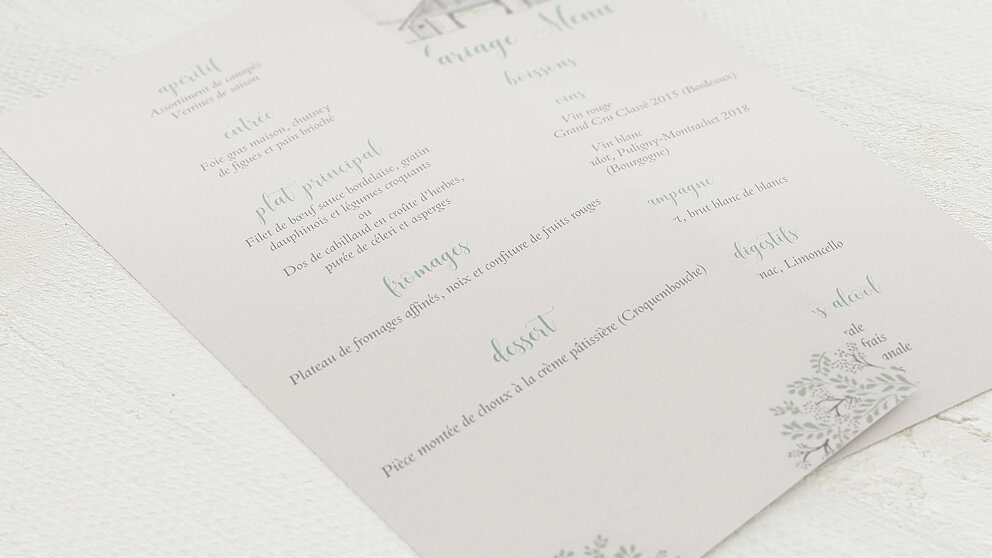 apéritif
Assortiment de canapés
Verrines de saison
entrée
Foie gras maison, chutney
de figues et pain brioché
plat principal
Filet de bœuf sauce bordelaise, gratin
dauphinois et légumes croquants
ou
Dos de cabillaud en croûte d'herbes,
purée de céleri et asperges
fromages
Plateau de fromages affinés, noix et confiture de fruits rouges
dessert
Pièce montée de choux à la crème pâtissière (Croquembouche)
ariage Menu
boissons
vins
Vin rouge
Grand Cru Classé 2015 (Bordeaux)
Vin blanc
adot, Puligny-Montrachet 2018
(Bourgogne)
ampagne
r, brut blanc de blancs
digestifs
nac, Limoncello
s alcool
ale
frais
anale